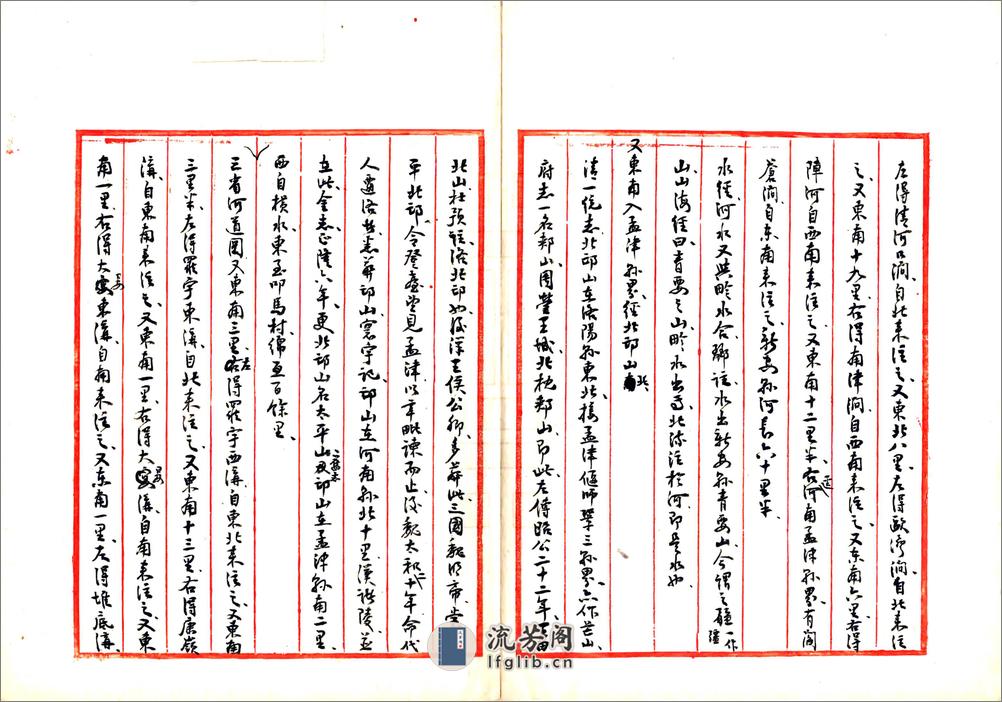 左得清河口澗自北来注之又東北八里左得歐沟澗自北来注
之又東南十九里右得南津澗自西南来注之又东南六里右得
陣河自西南来注之又東南十二里半右河南孟津孫界有阎
蒼澗自东南来注之新安孫河長六十里半
水經河水又與畛水合酈注水出新安孫青要山今谓之疆一作彊
山山海經曰青要之山畛水出焉北流注於河即是水也
又東南入孟津孫界經北邙山北
清一统志北邙山在洛陽孫東北接孟津偃師鞏三孫界亦作芒山
府志一名郟山周營王城北枕郟山即此左傳昭公二十二年王田
北山杜預注洛北邙也後漢王侯公卿多葬此三國魏明帝嘗
平北邙令登臺望見孟津以辛毗諫而止後魏太和十年命代
人遷洛者悉葬邙山寰宇記邙山在河南孫北十里漢諸陵並
在此金志正隆六年更北邙山名太平山又邙山在孟津孫南二里
西自横水東至叩馬村绵亘百餘里
三省河道圖又東南三里左得羅宇西溝自東北来注之又東南
三里半左得羅宇東溝自北来注之又東南十三里右得康嶺
溝自東南来注之又東南一里右得大溝自南来注之又東
南一里右得大東溝自南来注之又东南一里左得堆底溝
流芳阁
lfglib.cn